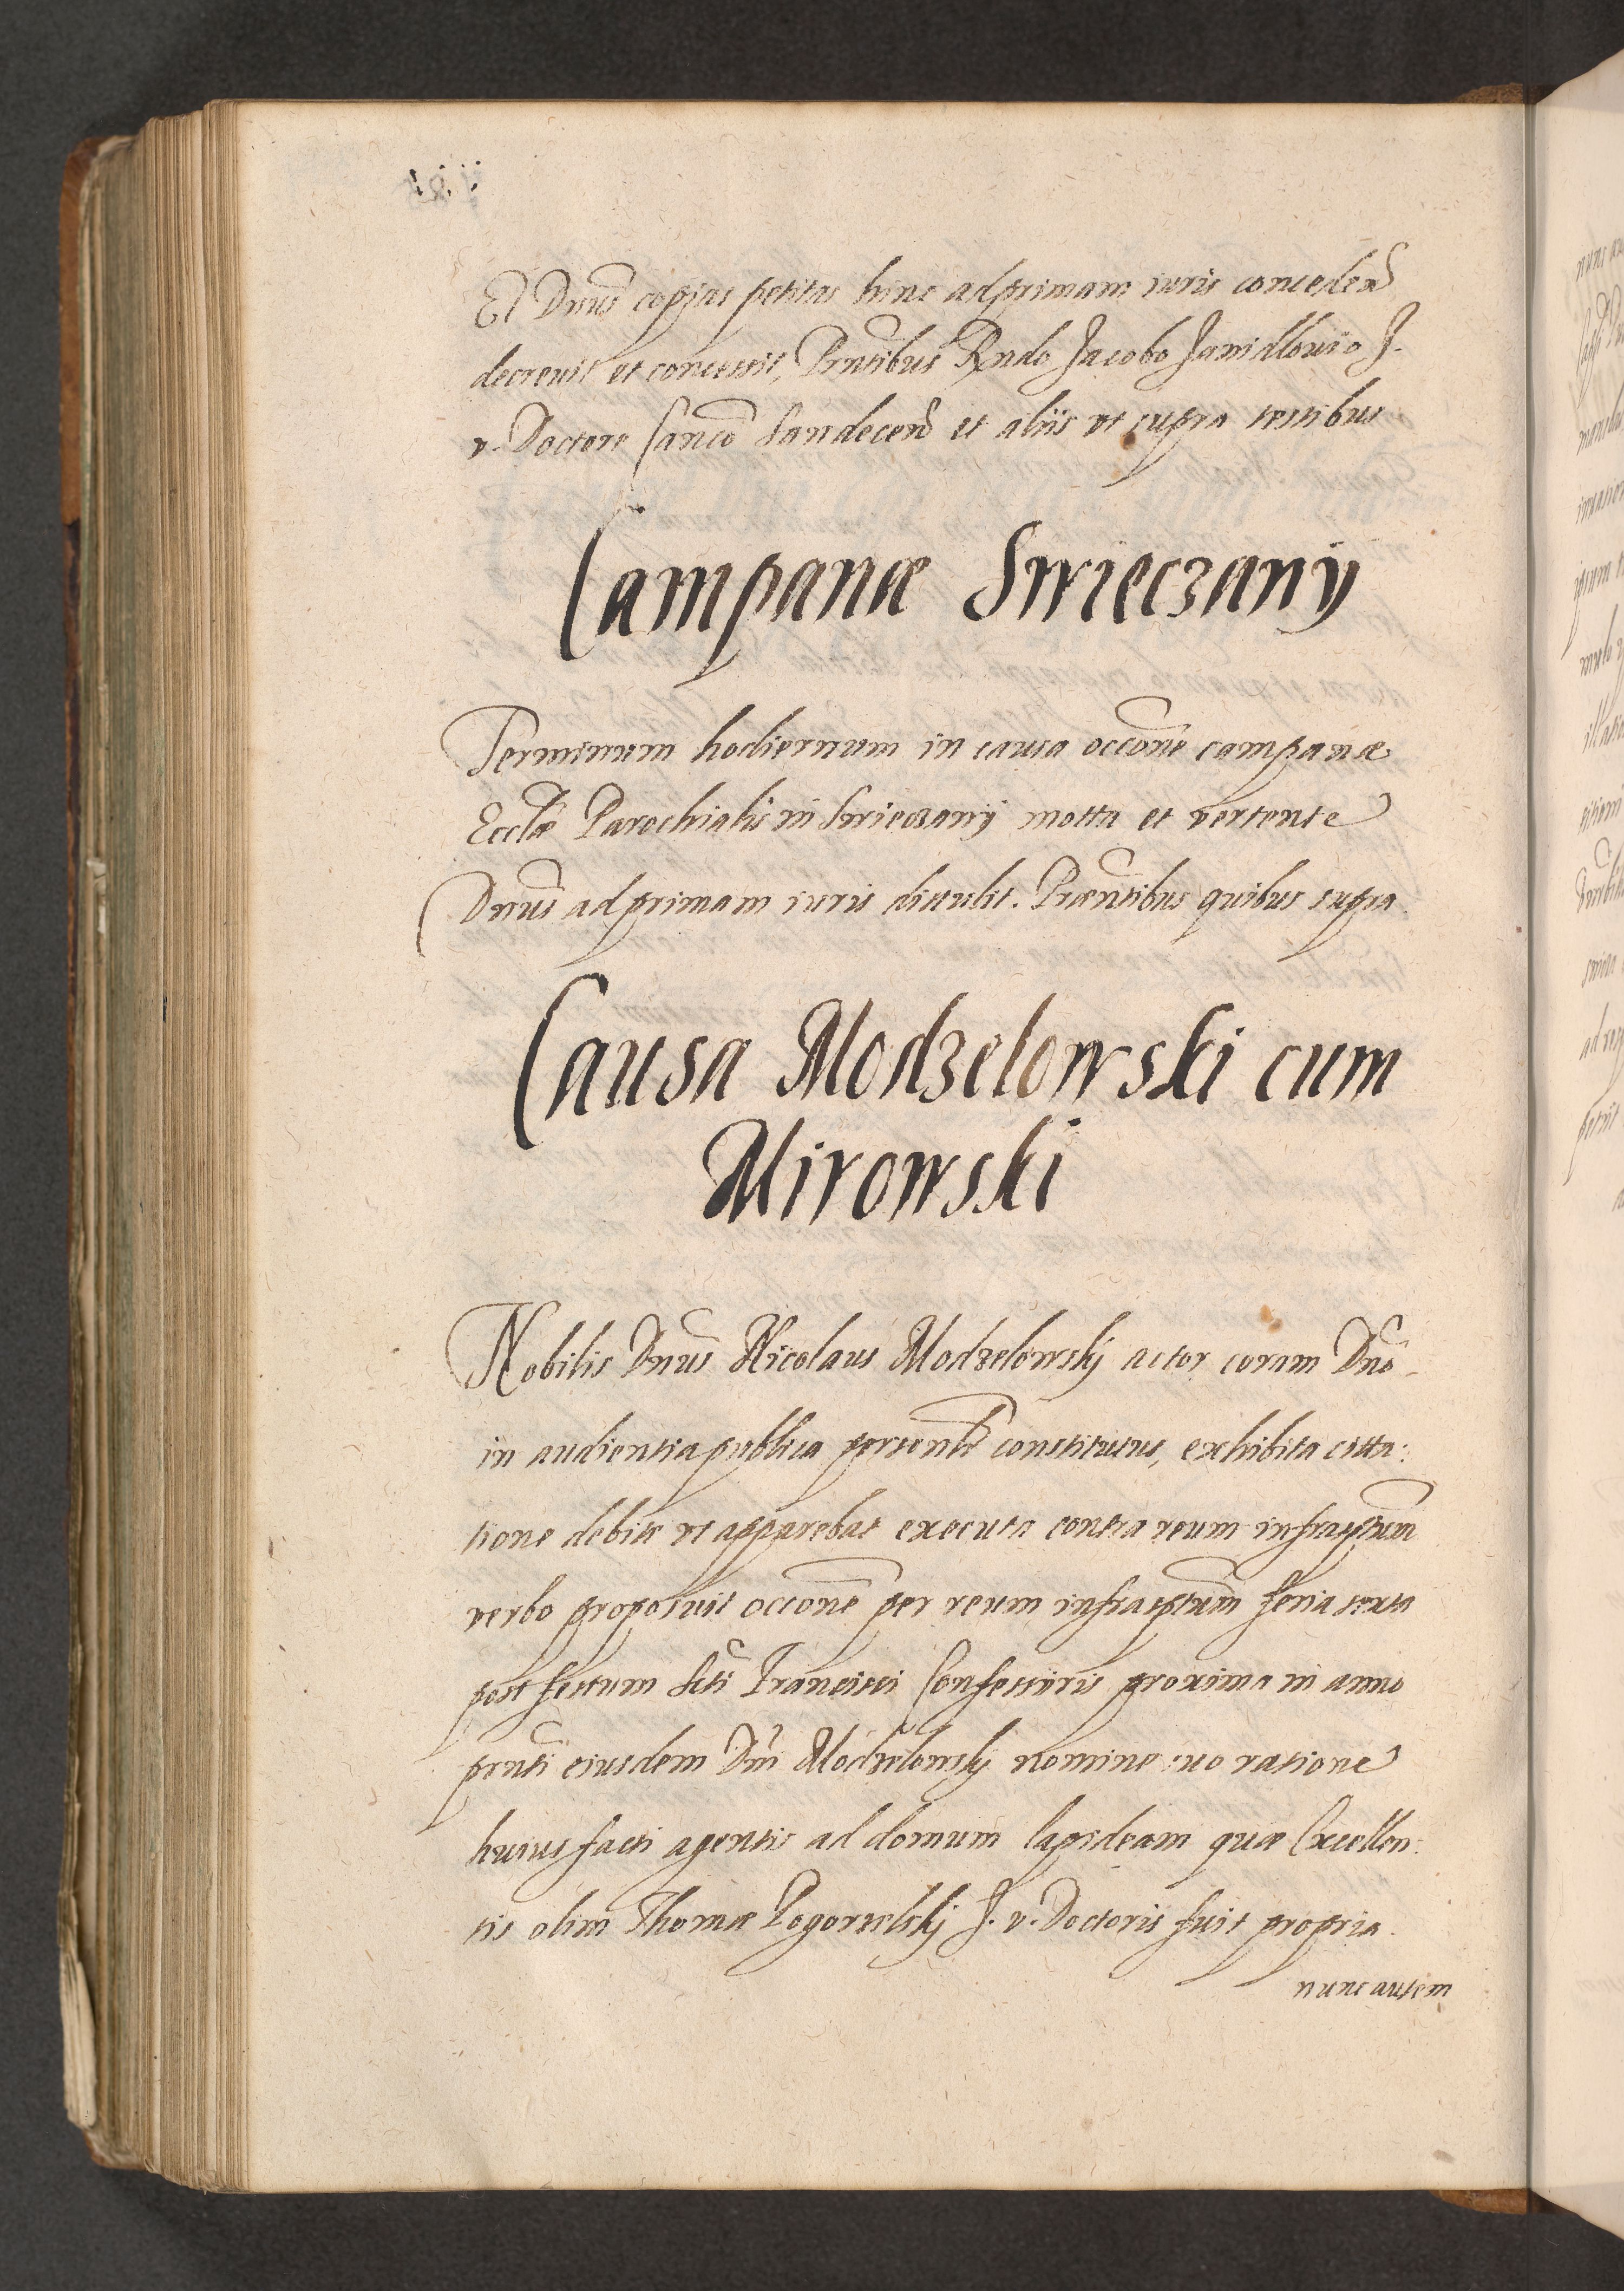 Et Dnus copias petitas hinc ad primam iuris conceden̄
decrevit et concessit, Prntibus Rndo Jacobo Janidllovio J.
v. Doctore Canco Sandecen̄ et aliis vt supra testibus
Campanæ Swieczany
Terminum hodiernum in causa occōne campanæ
Ecclæ Parochialis in Swieczany motta et vertente
Dnus ad primam iuris distulit. Præntibus quibus supra
Causa Modzelowski cum
Mirowski
Nobilis Dnus Nicolaus Modzelowskij actor coram Dno
in audientia publica personlr constitutus, exhibita citta:
tione debite vt apparebat executa contra reum infrascptum
verbo proposuit occōne per reum infrascptum feria sexta
post festum Scti Francisci Confessoris proxima in anno
prnti eiusdem Dni Modzelowskij nomine suo ratione
huius facti agentis ad domum lapideam quæ Excellen:
tis olim Thomæ Pogorzelskij J. v. Doctoris fuit propria.
nunc autem